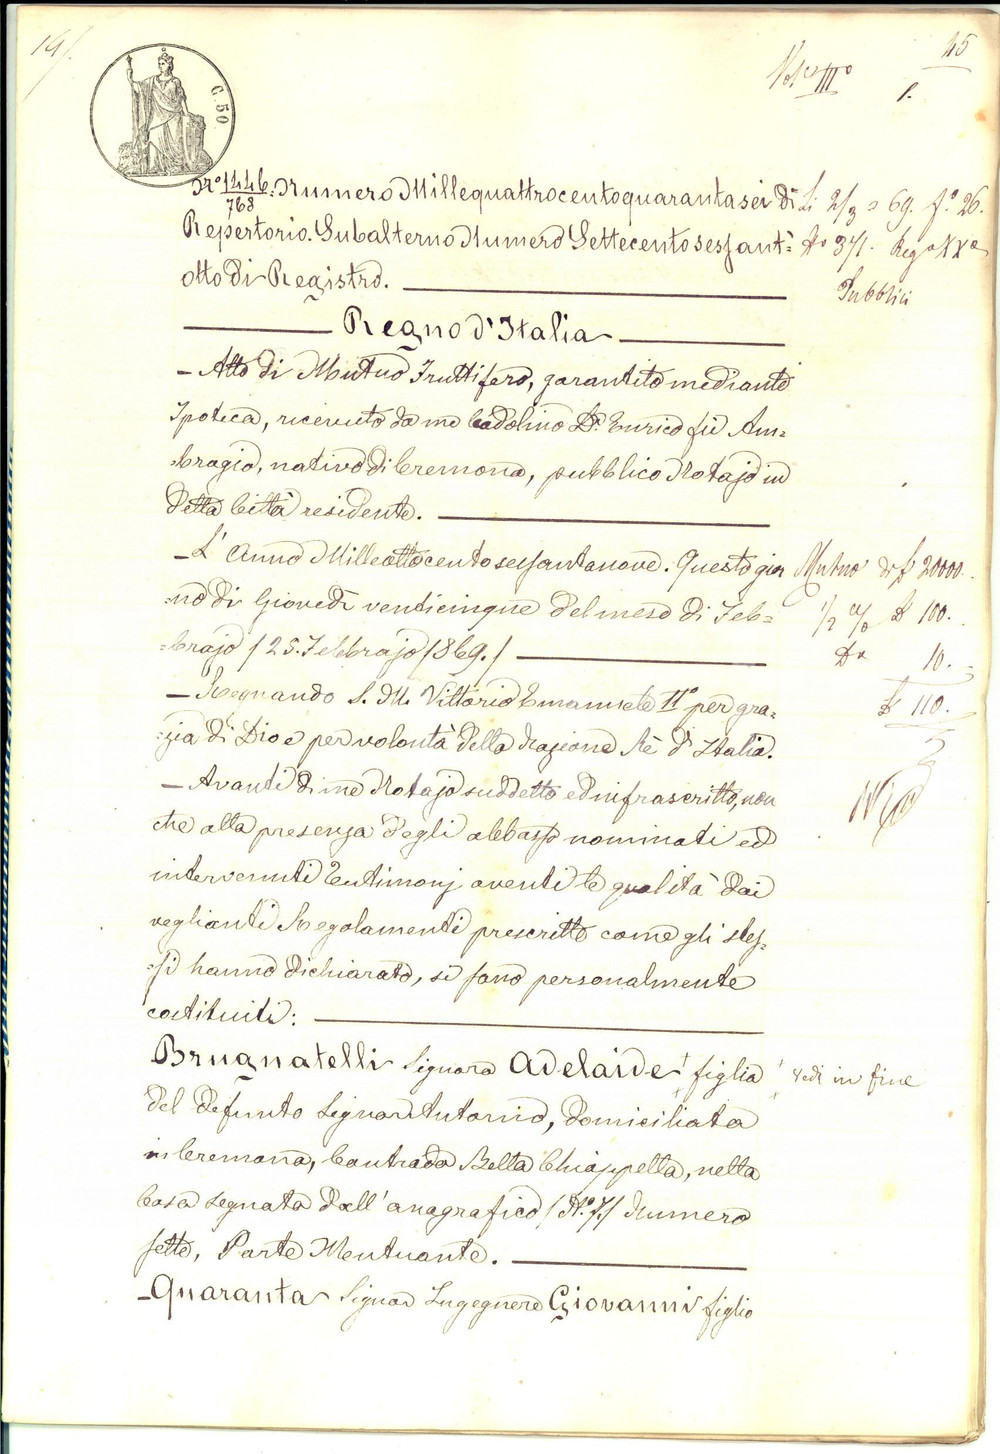 19/.
45
Vol. III°
1.
C. 50
N° 1446. Numero Millequattrocentoquarantasei di
768
Repertorio. Subalterno Numero Settecentosessant=
otto di Registro.
Li 2/3 = 69. f.° 26.
N° 371. Reg°
Pubblici
Regno d'Italia
– Atto di Mutuo Fruttifero, garantito mediante
Ipoteca, ricevuto da me Cadolino Dr. Enrico fù Am=
=brogio, nativo di Cremona, pubblico Notajo in
detta Città residente.
– L'Anno Milleottocentosessantanove. Questo gior
=no di Giovedì venticinque del mese di Feb=
=brajo / 25. Febbrajo 1869. /
Mutuo di £ 20000.
1/2 % £ 100.
Dx 10. =
£ 110.
– Regnando S. M. Vittorio Emanuele II° per gra=
=zia di Dio e per volontà della Nazione Rè d'Italia.
– Avanti di me Notajo suddetto ed infrascritto, non
che alla presenza degli abbasso nominati ed
intervenuti Testimonj aventi le qualità dai
veglianti Regolamenti prescritte come gli stes=
=si hanno dichiarato, si sono personalmente
costituiti:
Brugnatelli Signora Adelaide figlia
vedi in fine
del defunto Signor Antonio, domiciliata
in Cremona, Contrada Bella Chioppella, nella
Casa segnata dall'anagrafico / N°. 7. / Numero
sette, Parte Mutuante.
– Quaranta Signor Ingegnere Giovanni figlio